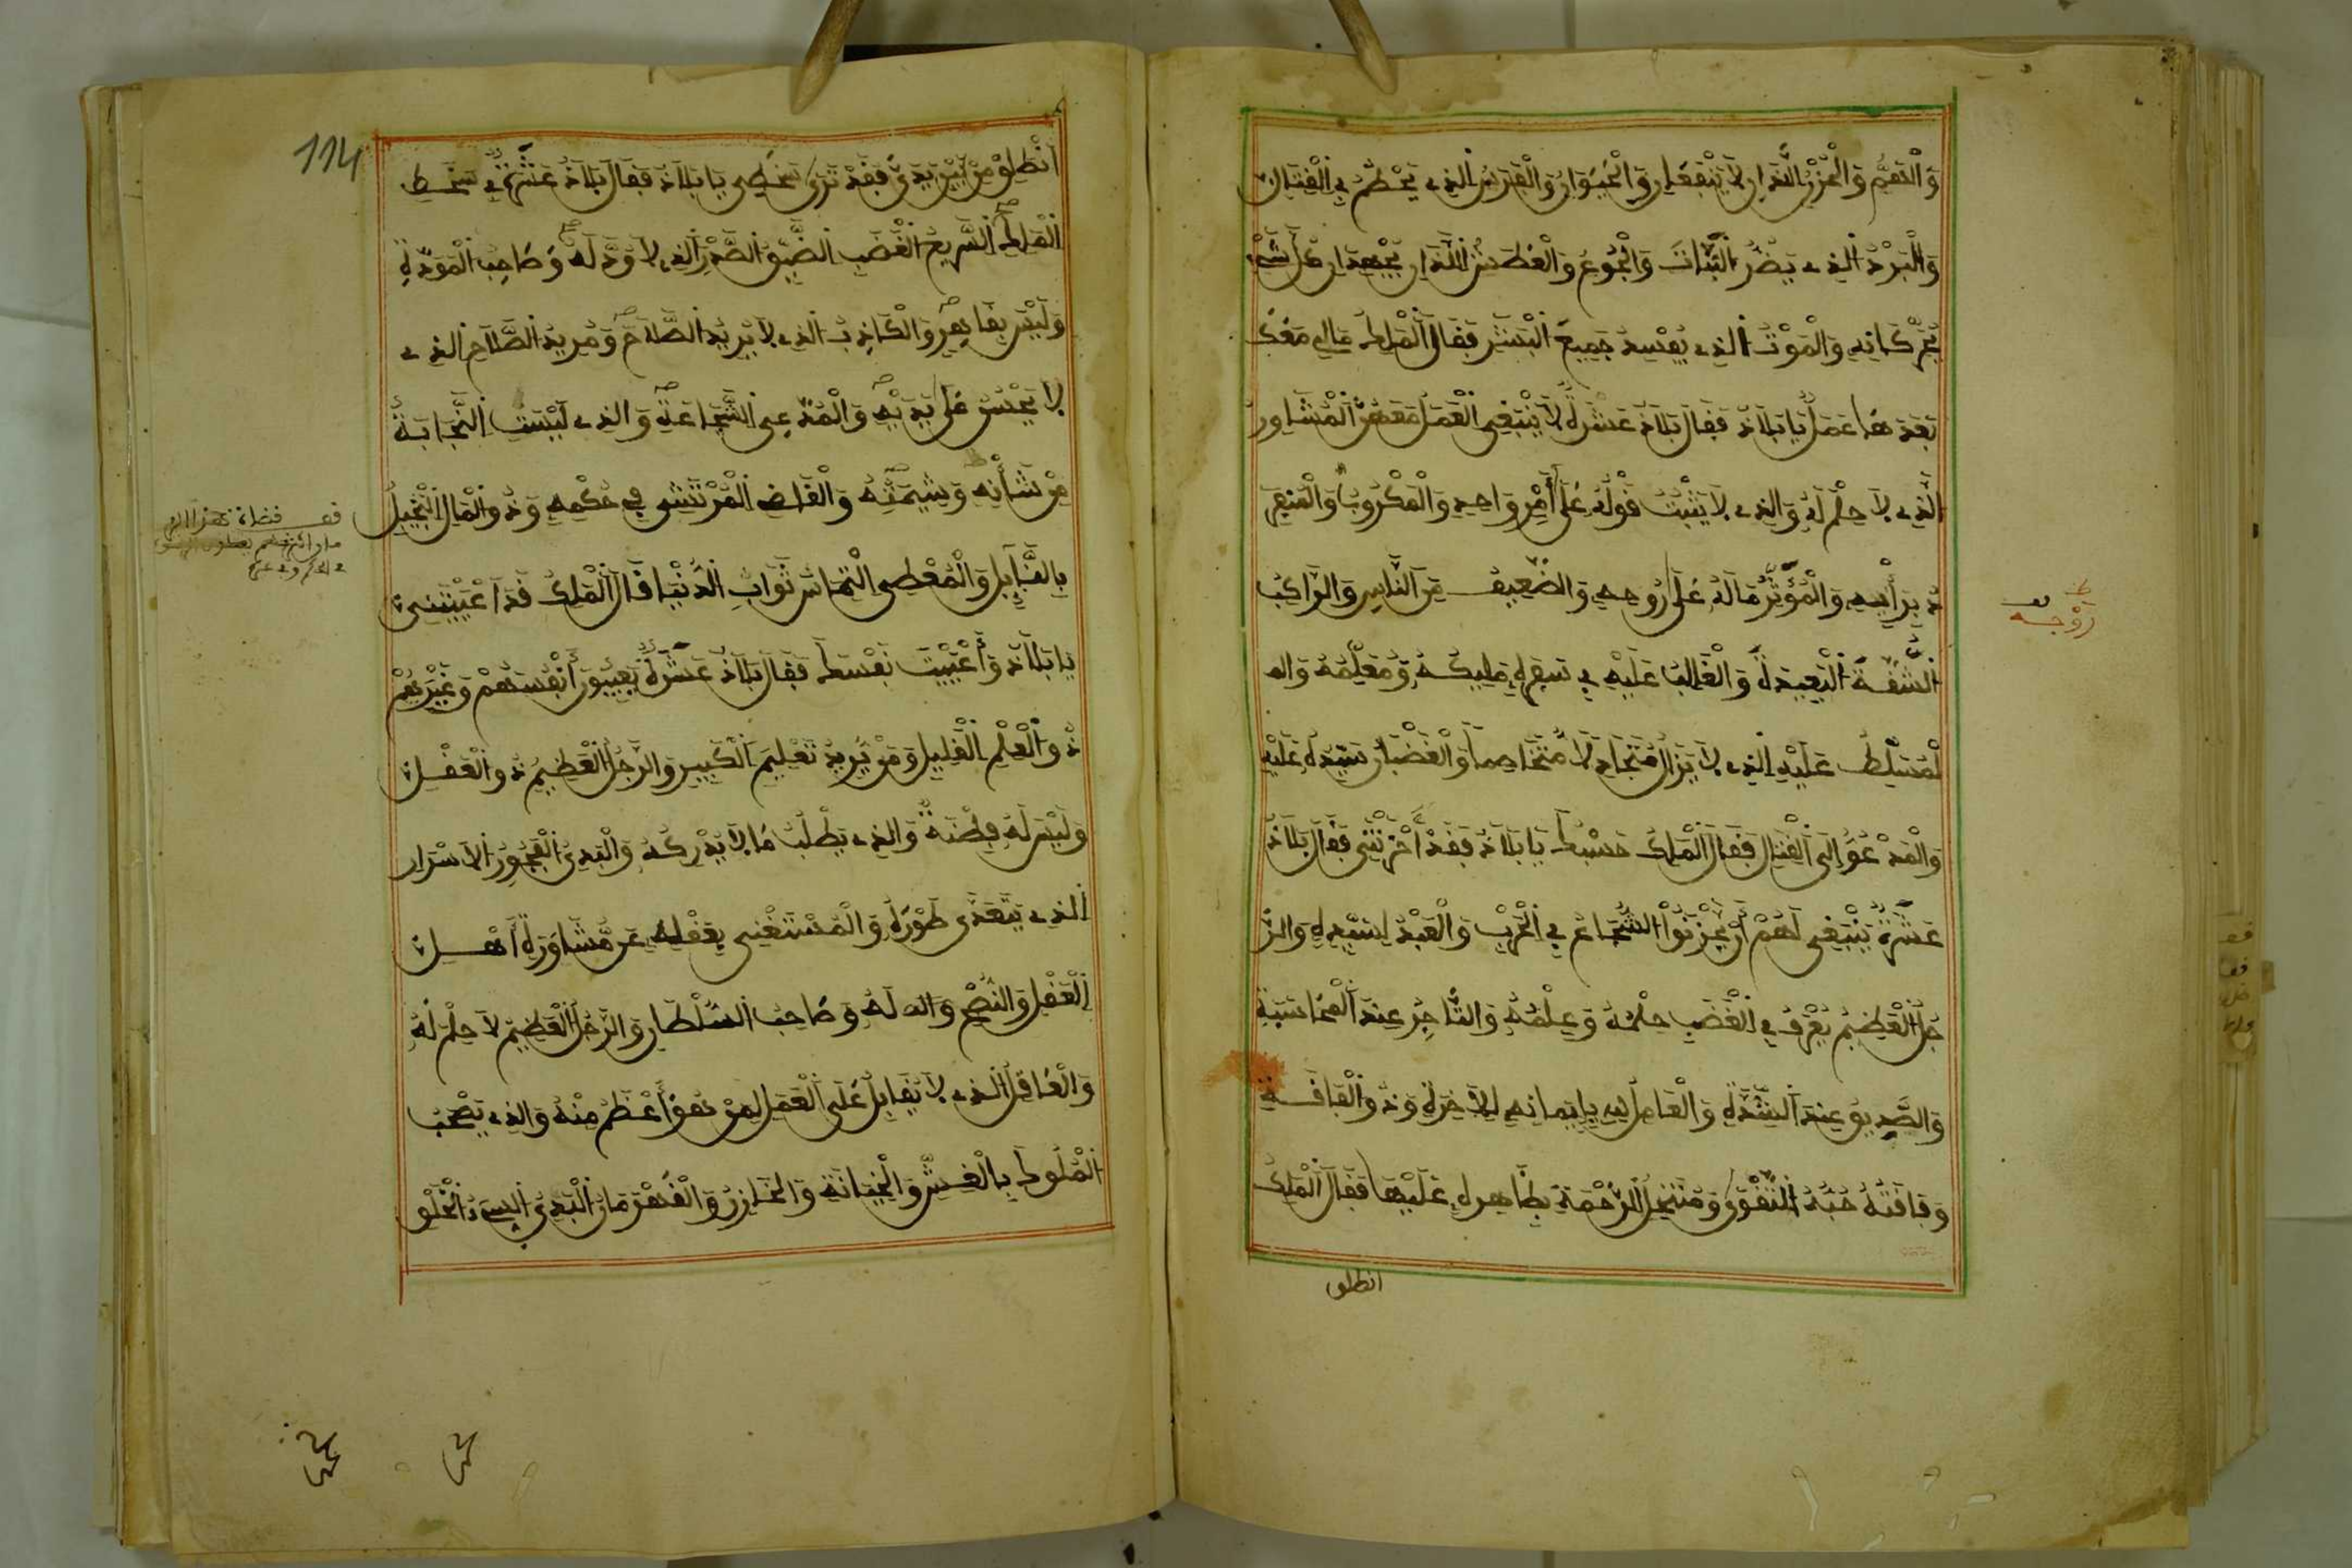 وَالْهَمُّ وَالْحُزْنُ اللَّذَانِ لَا يَنْفَعَانِ وَالْحَيَوَانُ وَالْفَرَسُ الذِي يَحْطُمُ فِي الْقِتَالِ
وَالْبَرْدُ الذِي يَضُرُّ النَّبَاتَ وَالْجُوعُ وَالْعَطَشُ اللَّذَانِ يُجْهِدَانِ كُلَّ شَيْءٍ
يُحَرِّكَانِهِ وَالْمَوْتُ الذِي يُفْسِدُ جَمِيعَ الْبَشَرِ فَقَالَ الْمَلِكُ مَالِي مَعَكَ
بَعْدَ هَذَا عَمَلٌ يَا بَلَاذُ فَقَالَ بَلَاذُ عَشَرَةٌ لَا يَنْبَغِي الْعَمَلُ مَعَهُمُ الْمُشَاوِرُ
الَّذِي لَا حِلْمَ لَهُ وَالذِي لَا يَثْبُتُ قَوْلُهُ عَلَى أَمْرٍ وَاحِدٍ وَالْمَكْرُوبُ وَالْمُنْفَرِ
دُ بِرَأْيِهِ وَالْمُؤْثِرُ مَالَهُ عَلَى رُوحِهِ وَالضَّعِيفُ مِنَ النَّاسِ وَالرَّاكِبُ
الشُّقَّةَ الْبَعِيدَةَ وَالْغَالِبُ عَلَيْهِ فِي سَفَرِهِ مَلِيكُهُ وَمُعَلِّمُهُ وَالـ
ْمُسَلَّطُ عَلَيْهِ الذِي لَا يَزَالُ مُتَجَادِلًا مُتَخَاصِمًا وَالْغَضْبَانُ سَيِّدُهُ عَلَيْهِ
وَالْمَدْعُوُّ إِلَى الْقِتَالِ فَقَالَ الْمَلِكُ حَسْبُكَ يَا بَلَاذُ فَقَدْ أَحْزَنْتَنِي فَقَالَ بَلَاذُ
عَشَرَةٌ يَنْبَغِي لَهُمْ أَنْ يَحْزَنُوا الشُّجَاعُ فِي الْحَرْبِ وَالْعَبْدُ لِسَيِّدِهِ وَالرَّ
جُلُ الْعَظِيمُ يُعْرَفُ فِي الْغَضَبِ حِلْمُهُ وَعِلْمُهُ وَالتَّاجِرُ عِنْدَ الْمُحَاسَبَةِ
وَالصَّدِيقُ عِنْدَ الشِّدَّةِ وَالْعَامِلُ للهِ بِإِيمَانِهِ لِلْآخِرَةِ وَذُو الْفَاقَةِ
وَفَاقَتُهُ حُبُّهُ التَّقْوَى وَمُنْتَحِلُ الرَّحْمَةِ بِظَاهِرِهِ عَلَيْهَا فَقَالَ الْمَلِكُ
انطلق
روْجه
114
انْطَلِقْ مِنْ بَيْنِ يَدَيَّ فَقَدْ تَرَى سَخَطِي يَا بَلَاذُ فَقَالَ بَلَاذُ عَشَرَةٌ فِي سَخَطِ
الْمَلِكُ السَّرِيعُ الْغَضَبِ الضَّيِّقُ الصَّدْرِ الذِي لَا وُدَّ لَهُ وَصَاحِبُ الْمَوَدَّةِ
وَلَيْسَ بِقَاهِرٍ وَالْكَاذِبُ الذِي لَا يُرِيدُ الصَّلَاحَ وَمُرِيدُ الصَّلَاحِ الذِي
لَا يَحْسُنُ عَلَى يَدَيْهِ وَالْمُدَّعِي الشَّجَاعَةَ وَالذِي لَيْسَتِ النَّجَابَةُ
مِنْ شَأْنِهِ وَشِيمَتِهِ وَالْقَاضِي الْمُرْتَشِي فِي حُكْمِهِ وَذُو الْمَالِ الْبَخِيلُ
بِالْقَلِيلِ وَالْمُعْطِي الْتِمَاسَ ثَوَابِ الدُّنْيَا قَالَ الْمَلِكُ قَدْ أَعْيَيْتَنِي
يَا بَلَاذُ وَأَعْيَيْتَ نَفْسَكَ فَقَالَ بَلَاذُ عَشَرَةٌ يَعِيبُونَ أَنْفُسَهُمْ وَغَيْرَهُمْ
ذُو الْعِلْمِ الْقَلِيلِ وَمَنْ يُرِيدُ تَعْلِيمَ الْكَبِيرِ وَالرَّجُلُ الْعَظِيمُ ذُو الْعَقْلِ
وَلَيْسَ لَهُ فِطْنَةٌ وَالذِي يَطْلُبُ مَا لَا يُدْرِكُهُ وَالْبَذِيُّ الْفَجُورُ الْأَسْرَارِ
الذِي يَتَعَدَّى طَوْرَهُ وَالْمُسْتَغْنِي بِعَقْلِهِ عَنْ مُشَاوَرَةِ أَهْلِ
الْعَقْلِ وَالنُّصْحِ وَالدَّلَهِ وَصَاحِبُ السُّلْطَانِ وَالرَّجُلُ الْعَظِيمُ لَا حِلْمَ لَهُ
وَالْعَاقِلُ الذِي لَا يُقَابِلُ عَلَى الْعَمَلِ لِمَنْ هُوَ أَعْظَمُ مِنْهُ وَالذِي يَصْحَبُ
الْمُلُوكَ بِالْغِشِّ وَالْخِيَانَةِ وَالْخَازِنُ وَالْقَهْرَمَانُ الْبَذِيُّ السَّيِّئُ الْخُلْقِ